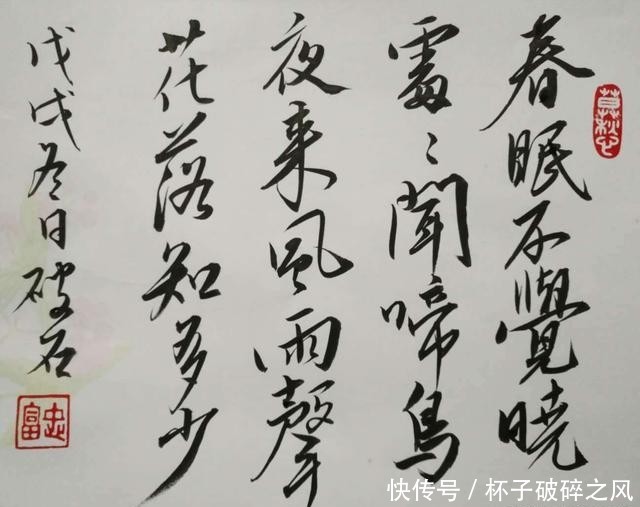 春眠不覺曉
處〻聞啼鳥
夜来風雨聲
花落知多少
戊戌冬日破石
忠富
快传号／杯子破碎之风